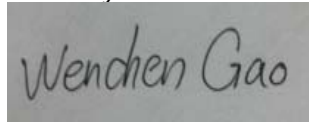 Wenchen Gao